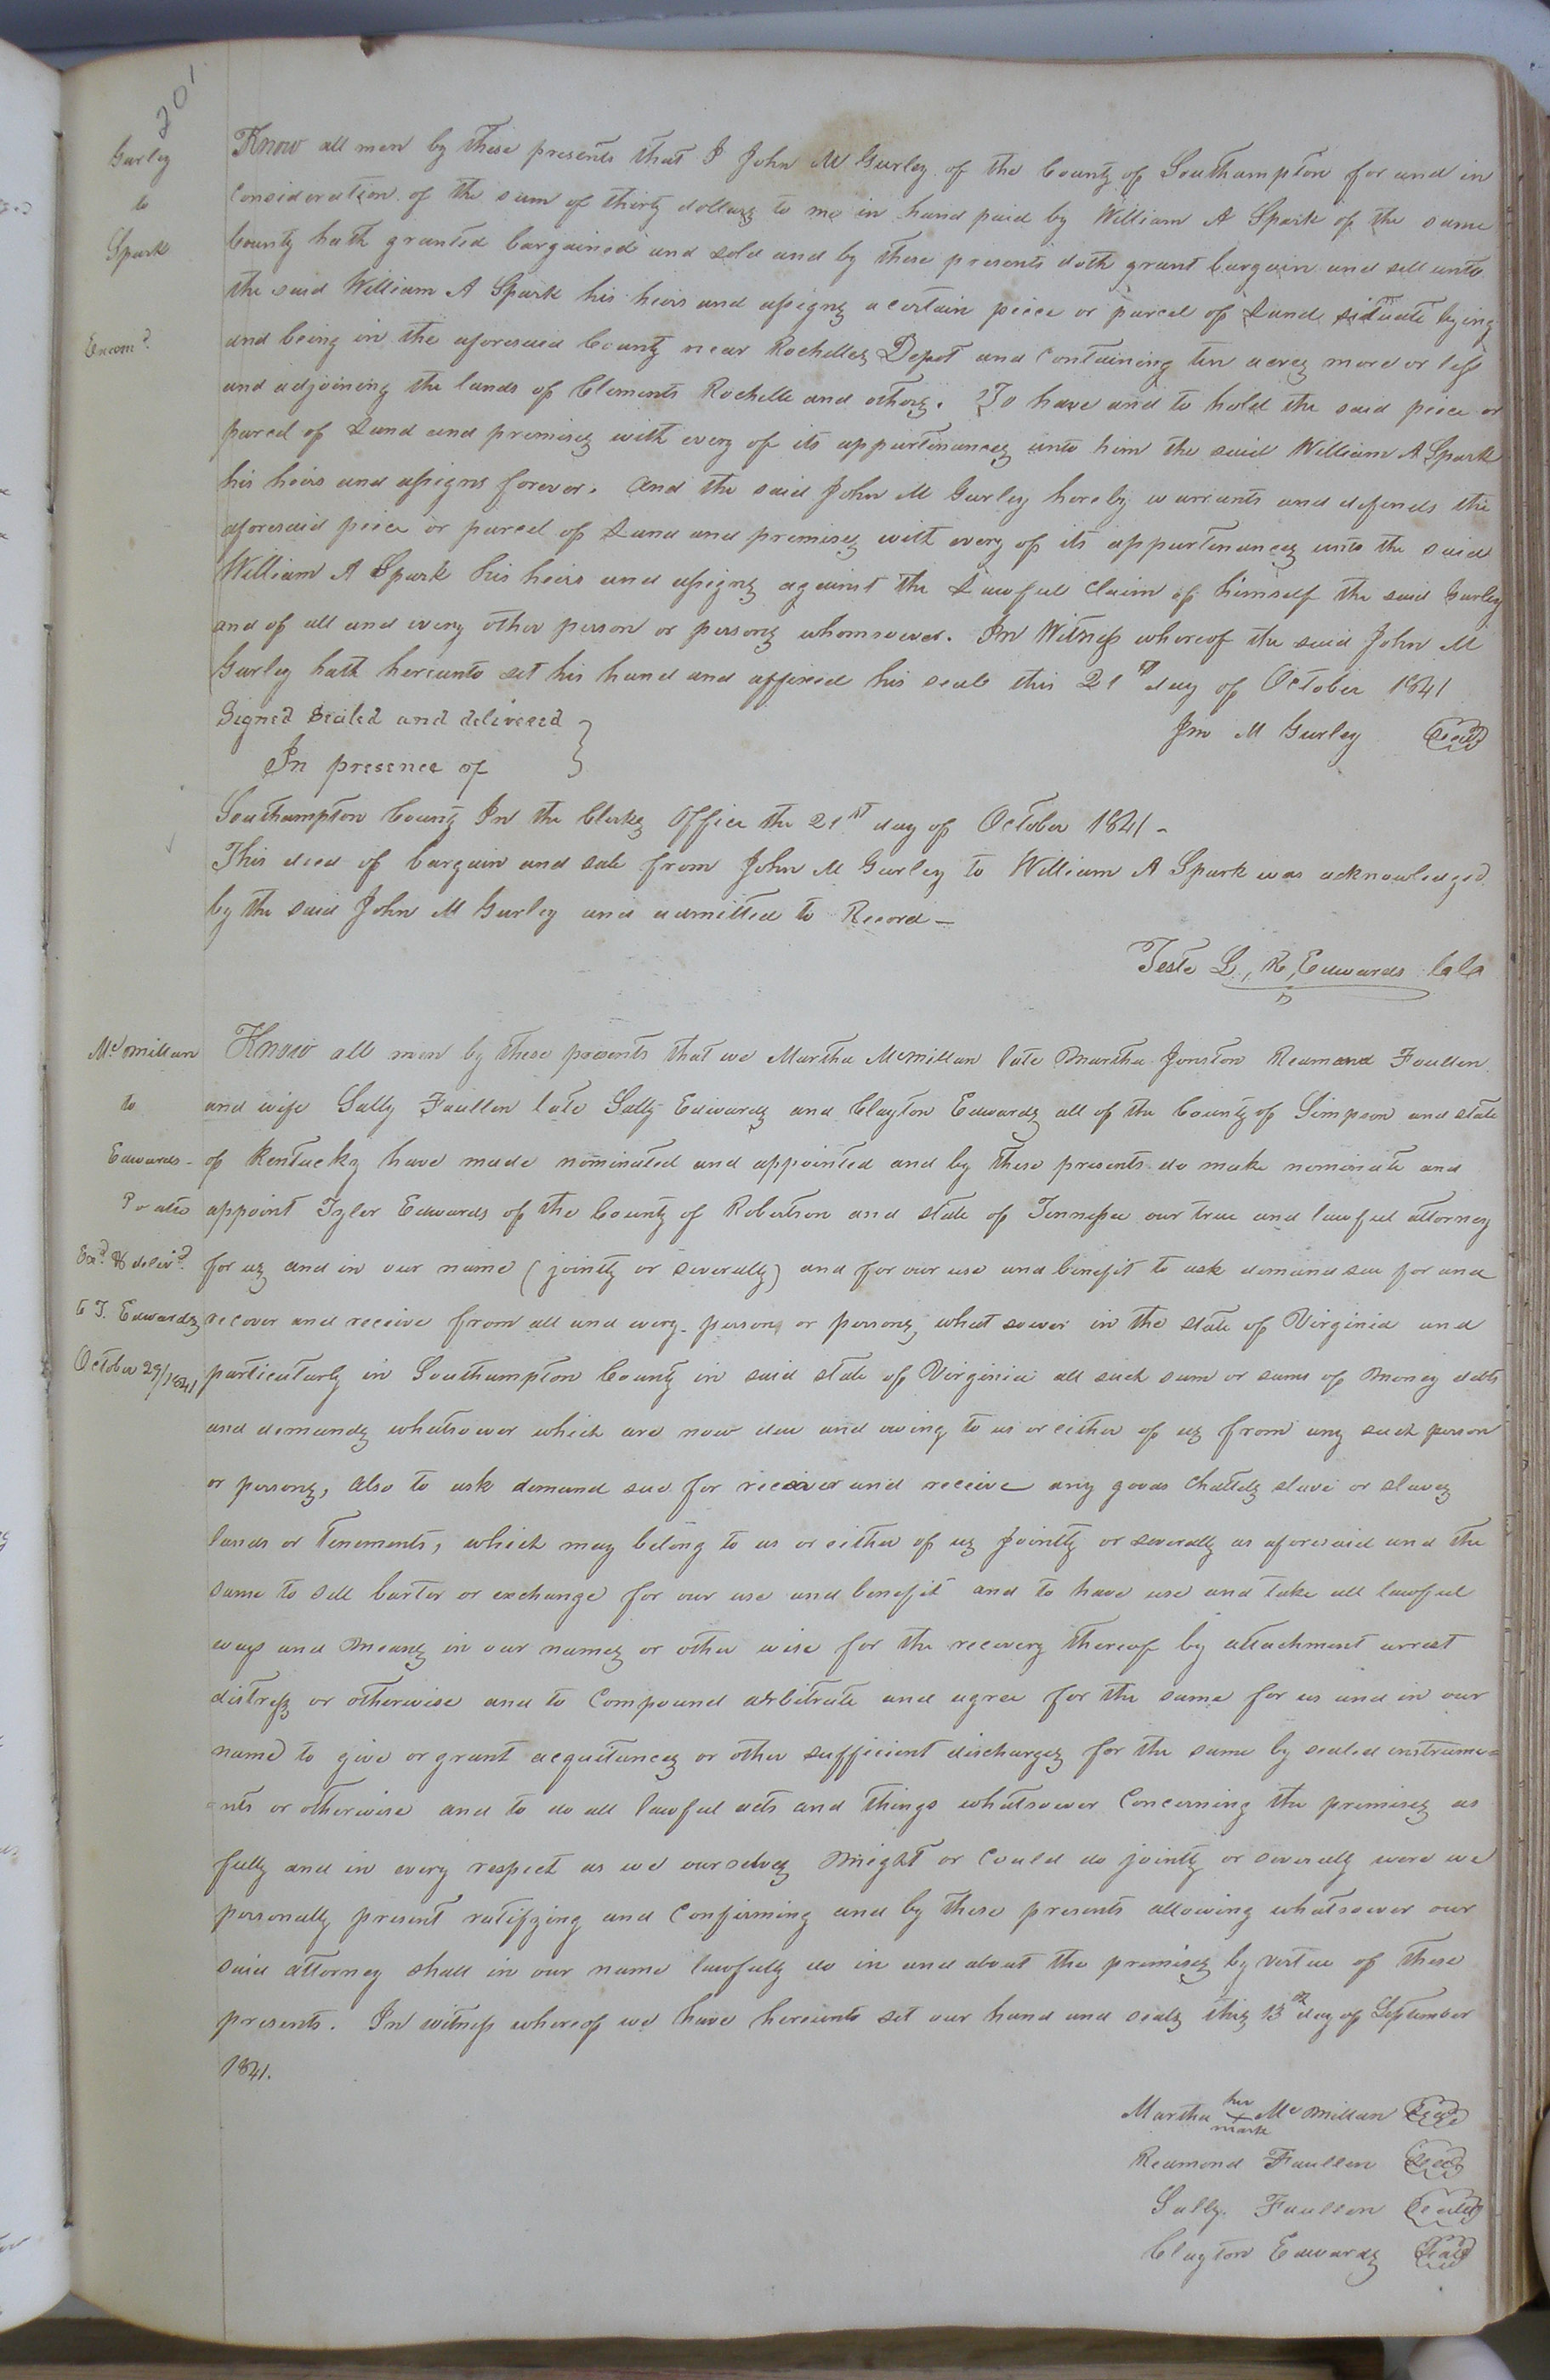 201
Gurley
to
Spark
Exam.d
Know all men by these presents that I John M Gurley of the County of Southampton for and in
consideration of the sum of thirty dollars to me in hand paid by William A Spark of the same
County hath granted bargained and sold and by these presents doth grant bargain and sell unto
the said William A Spark his heirs and assigns a certain piece or parcel of Land situate lying
and being in the aforesaid County near Rochelles Depot and containing ten acres more or less
and adjoining the lands of Clements Rochelle and others. To have and to hold the said piece or
parcel of Land and premises with every of its appurtenances unto him the said William A Spark
his heirs and assigns forever. And the said John M Gurley hereby warrants and defends the
aforesaid peice or parcel of Land and premises with every of its appurtenances unto the said
William A Spark his heirs and assigns against the Lawful Claim of himself the said Gurley
and of all and every other person or persons whomsoever. In Witness whereof the said John M
Gurley hath hereunto set his hand and affixed his seal this 21st day of October 1841
Signed Sealed and delivered } Jno M Gurley Seal
In presence of
Southampton County In the Clerks Office the 21st day of October 1841 -
This deed of bargain and sale from John M Gurley to William A Spark was acknowledged
by the said John M Gurley and admitted to Record -
Teste L, R, Edwards Cl C
McMillan
to
Edwards -
P atto
Ex.d & deliv.d
to T. Edwards
October 29/1841
Know all men by these presents that we Martha McMillan late Martha Jonston Reamond Faullen
and wife Sally Faullen late Sally Edwards and Clayton Edwards all of the County of Simpson and state
of Kentucky have made nominated and appointed and by these presents do make nominate and
appoint Tyler Edwards of the County of Robertson and state of Tennessee our true and lawful attorney
for us and in our name (jointly or severally) and for our use and benefit to ask demand sue for and
recover and receive from all and every person or persons whatsoever in the state of Virginia and
particularly in Southampton County in said state of Virginia all such sum or sums of Money debts
and demands whatsoever which are now due and owing to us or either of us from any such person
or persons, also to ask demand sue for recover and receive any goods Chattels slave or slaves
lands or Tenements, which may belong to us or either of us Jointly or severally as aforesaid and the
same to sell barter or exchange for our use and benefit and to have use and take all lawful
ways and Means in our names or other wise for the recovery thereof by attachment arrest
distress or otherwise and to Compound arbitrate and agree for the same for us and in our
name to give or grant acquitances or other sufficient discharges for the same by sealed instrume=
nts or otherwise and to do all lawful acts and things whatsoever Concerning the premises as
fully and in every respect as we ourselves Might or Could do jointly or severally were we
personally present ratifying and Confirming and by these presents allowing whatsoever our
said attorney shall in our name lawfully do in and about the premises by virtue of these
presents. In witness whereof we have hereunto set our hand and seals this 13th day of September
1841.
Martha her x mark McMillan Seal
Reamond Faullen Seal
Sally Faullen Seal
Clayton Edwards Seal